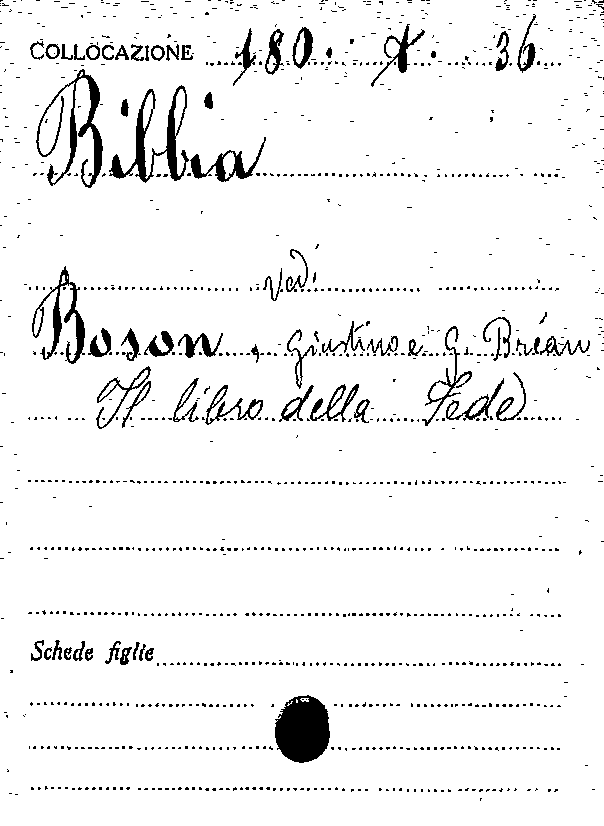 COLLOCAZIONE 180. A. 36
Bibbia
Vedi
Boson, Giustino e G. Bréan
Il libro della Fede
Schede figlie